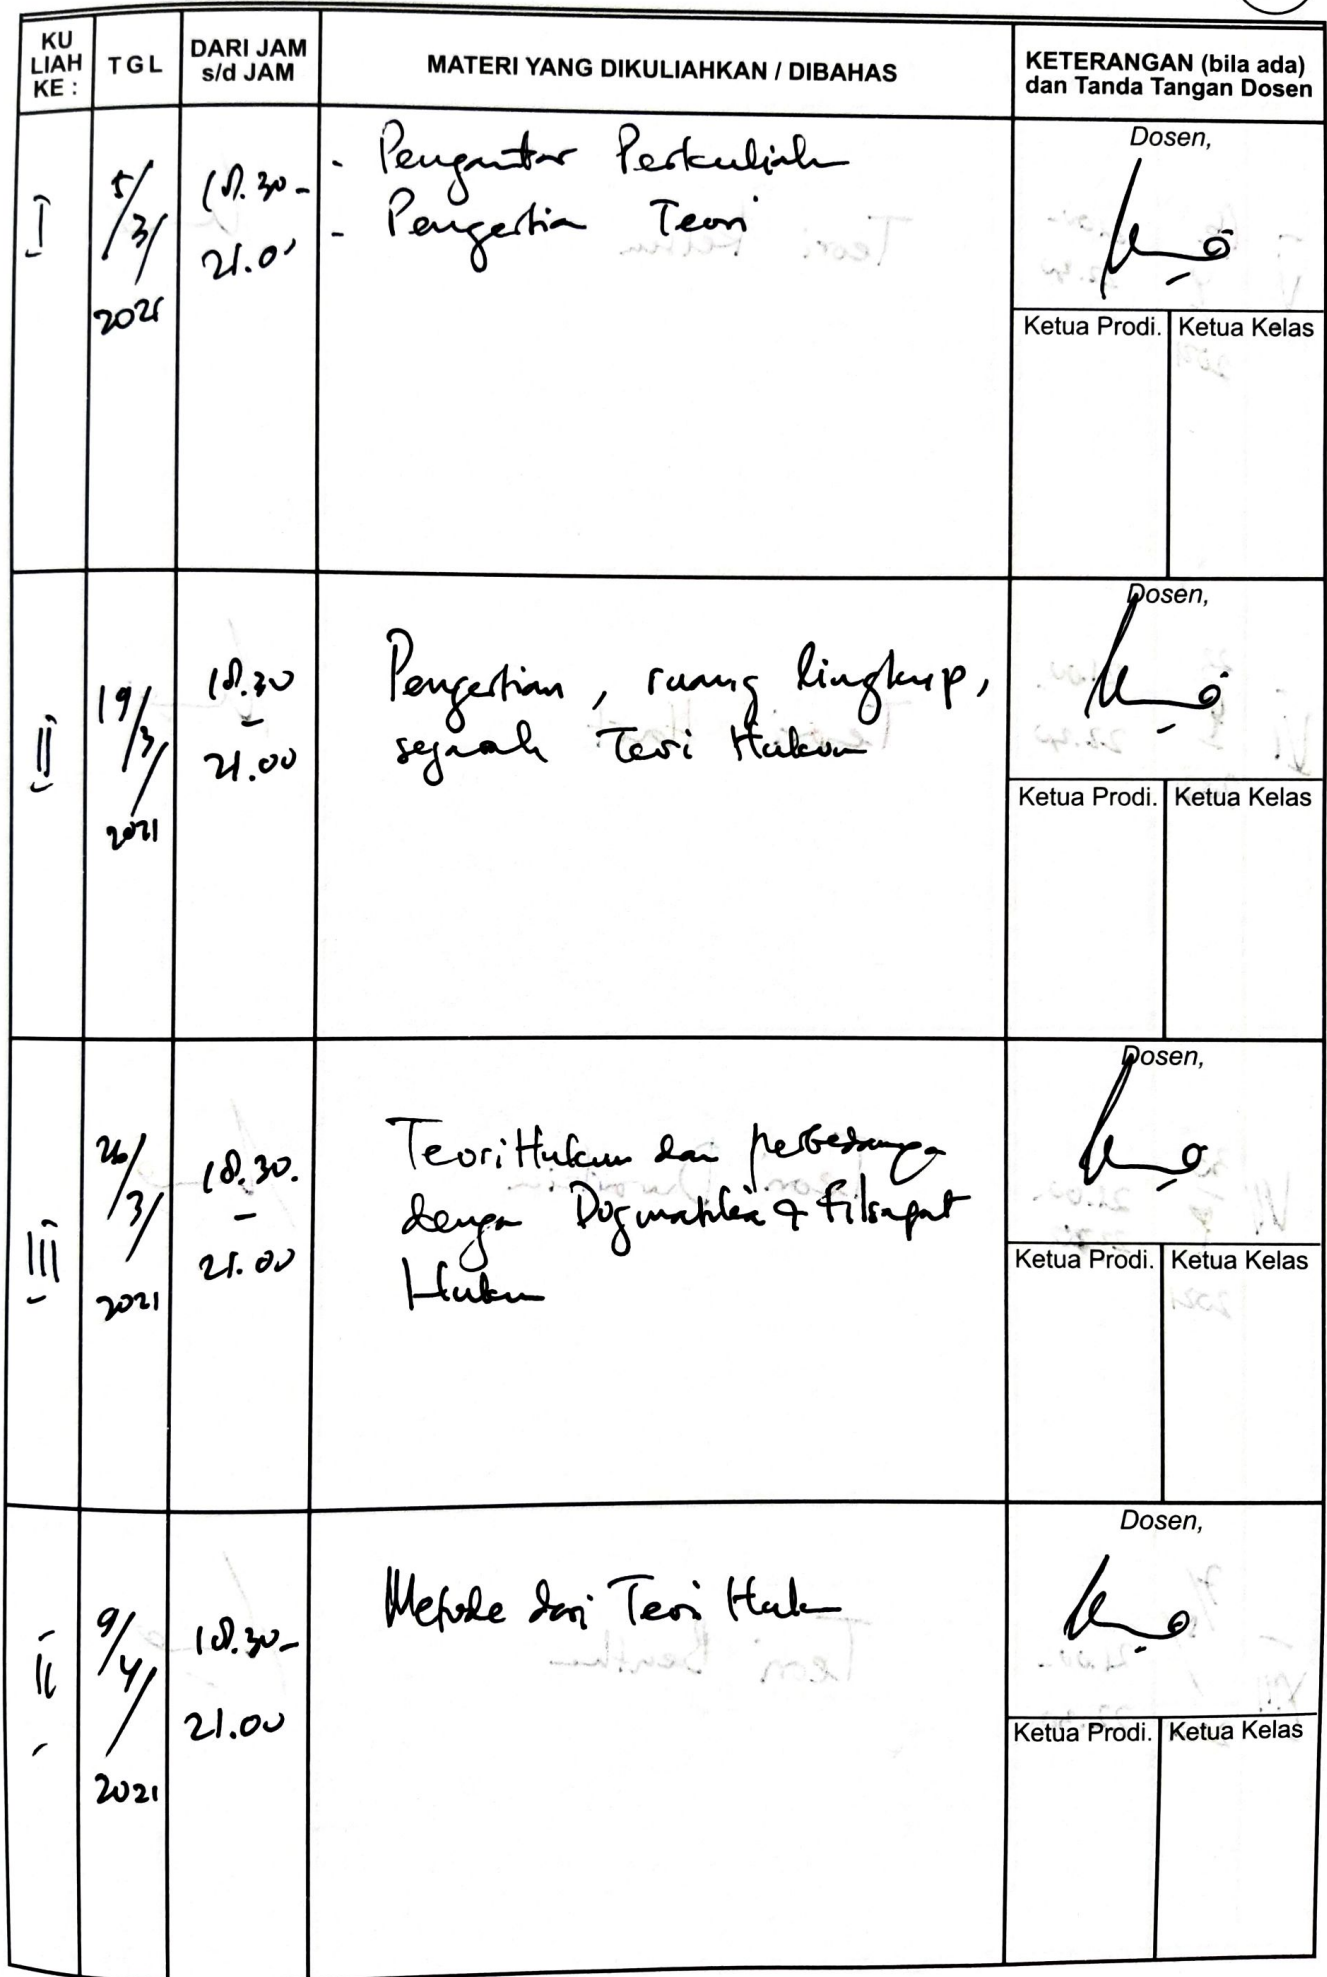 KU
LIAH
KE :
TGL
DARI JAM
s/d JAM
MATERI YANG DIKULIAHKAN / DIBAHAS
KETERANGAN (bila ada)
dan Tanda Tangan Dosen
I
5/3/
2021
18.30 -
21.0
- Pengantar Perkuliah
- Pengertia Teori
Dosen,
Ketua Prodi. Ketua Kelas
II
19/3/
2021
18.30
-
21.00
Pengertian, ruang lingkup,
sejarah Teori Hukum
Dosen,
Ketua Prodi. Ketua Kelas
III
26/3/
2021
18.30.
-
21.00
Teori Hukum dan perbedanya
denga Dogmatika & Filsapat
Hukum
Dosen,
Ketua Prodi. Ketua Kelas
9/4/
2021
18.30-
21.00
Metode dari Teori Huk
Dosen,
Ketua Prodi. Ketua Kelas